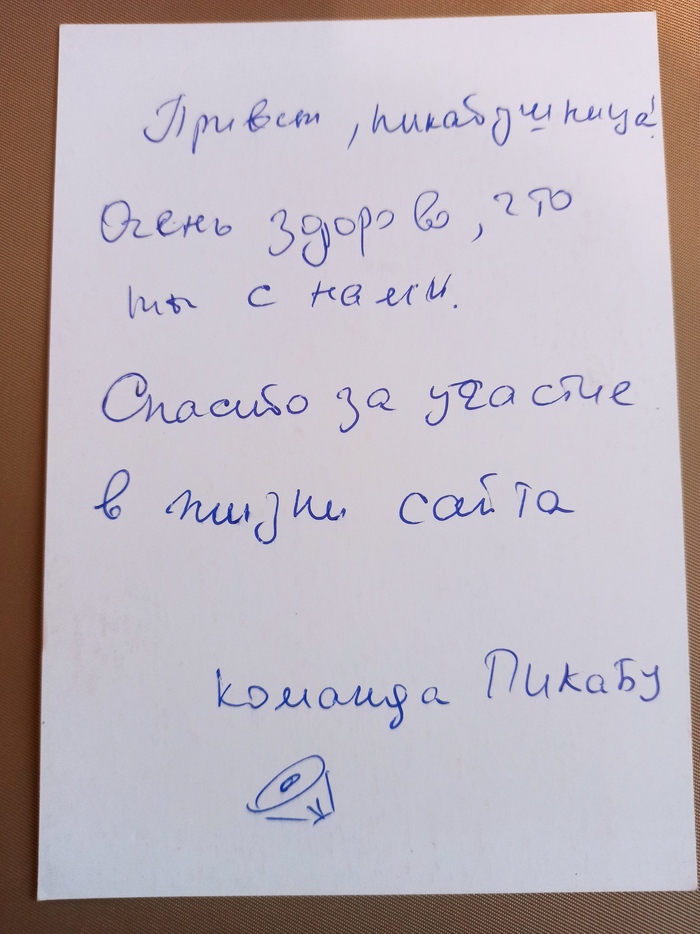 Привет, пикабушница!
Очень здорово, что
ты с нами.
Спасибо за участие
в жизни сайта
команда Пикабу